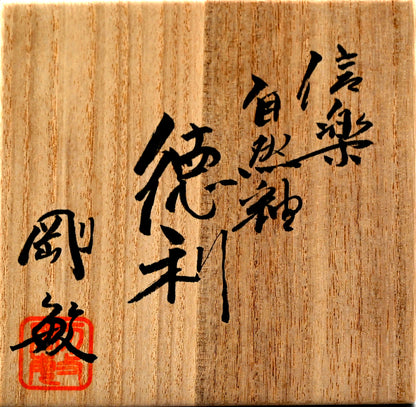 信楽
自然袖
徳利
剛敏